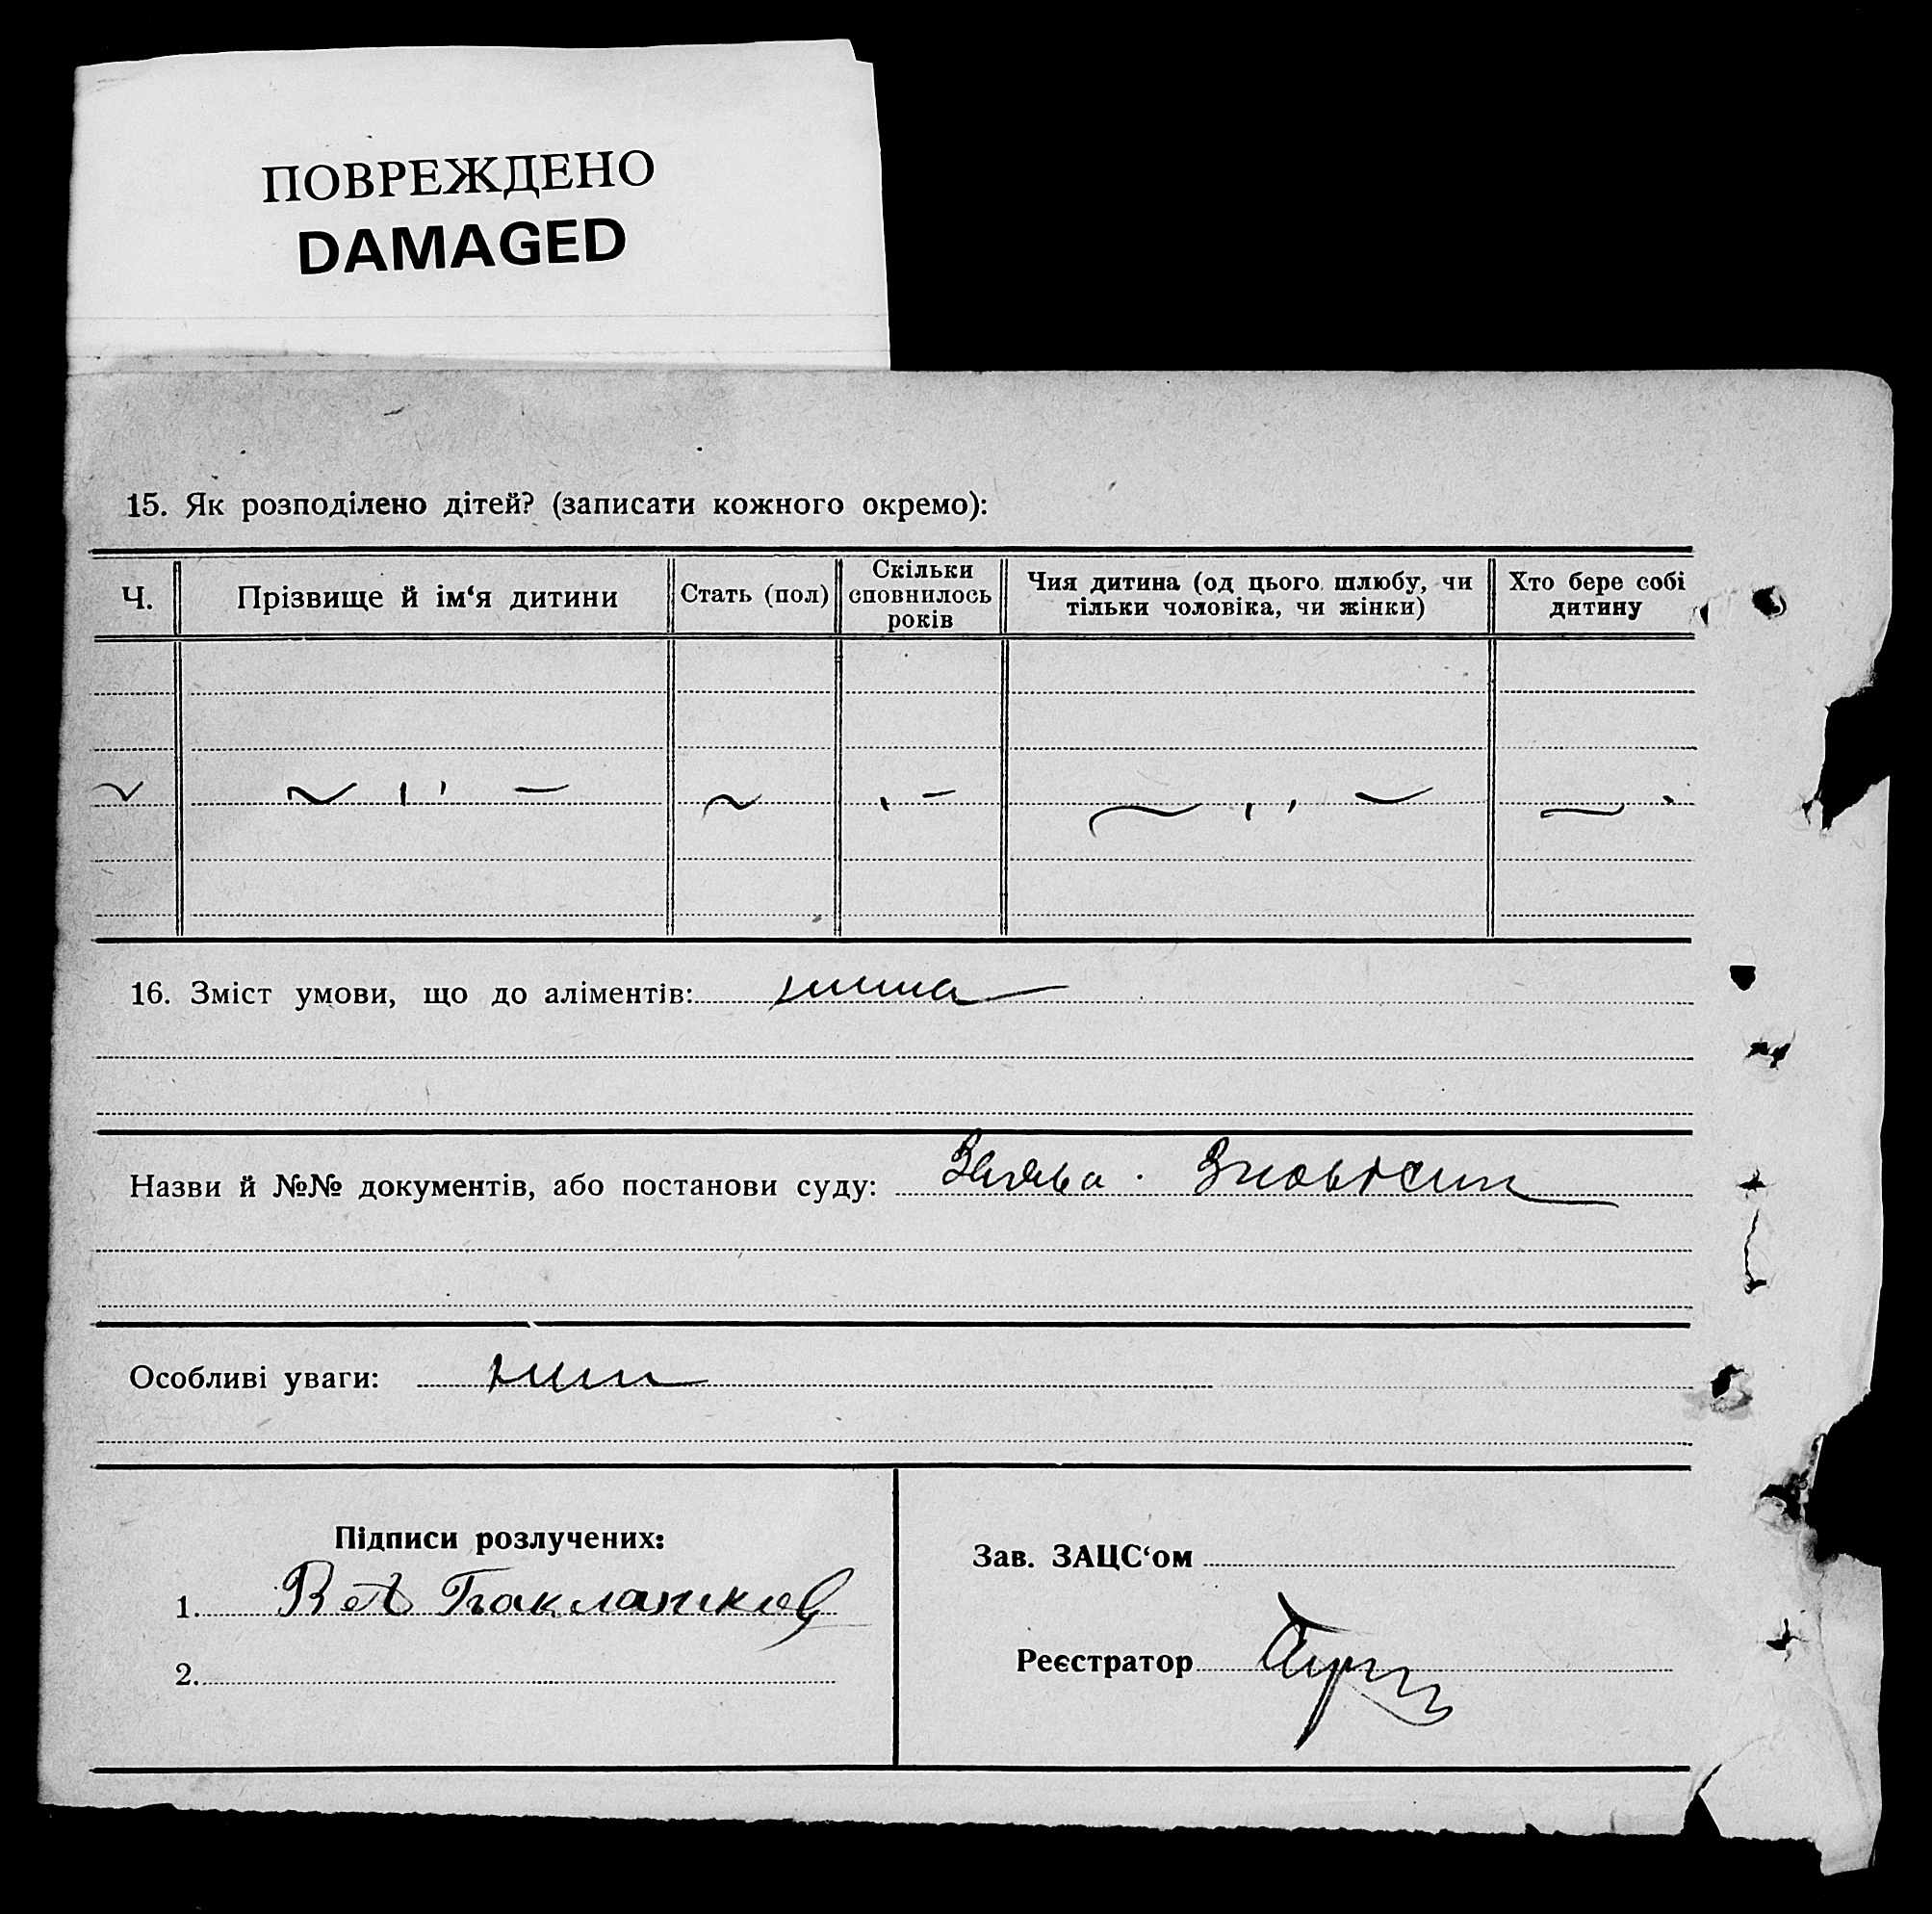 ПОВРЕЖДЕНО
DAMAGED
15. Як розподілено дітей? (записати кожного окремо):
Ч. Прізвище й ім‘я дитини Стать (пол) Скільки сповнилось років Чия дитина (од цього шлюбу, чи тільки чоловіка, чи жінки) Хто бере собі дитину
16. Зміст умови, що до аліментів: нима
Назви й №№ документів, або постанови суду: Заява.
Особливі уваги:
Підписи розлучених:
1.
2.
Зав. ЗАЦС‘ом
Реєстратор